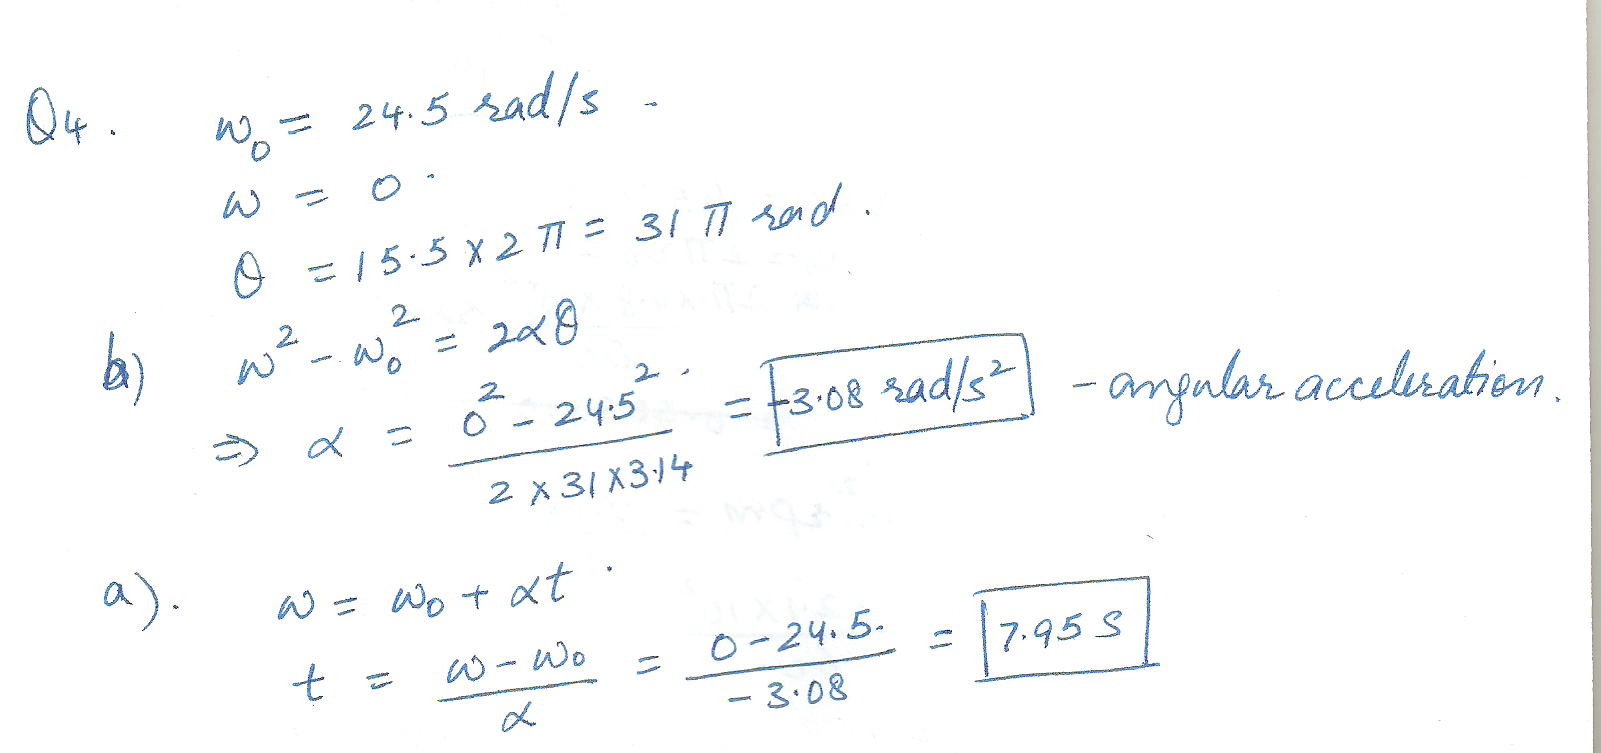 Q4. ω₀ = 24.5 rad/s.
ω = 0.
θ = 15.5 x 2 π = 31 π rad.
b) ω² - ω₀² = 2αθ
⇒ α = (0² - 24.5²) / (2 x 31 x 3.14) = -3.08 rad/s² - angular acceleration.
a). ω = ω₀ + αt.
t = (ω - ω₀) / α = (0 - 24.5.) / (- 3.08) = 7.95 s